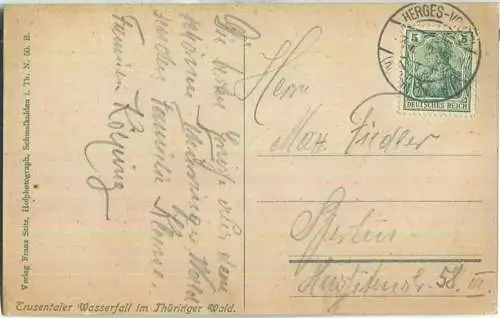 Die besten Grüße aus dem
schönen Thüringer Wald
sendet Familie
Familie
HERGES-VO
5 5
DEUTSCHES REICH
Herrn
Max Fiedler
Berlin
58. III.
Verlag Franz Seitz, Hofphotograph, Schmalkalden i. Th. N. 50. B.
Trusentaler Wasserfall im Thüringer Wald.